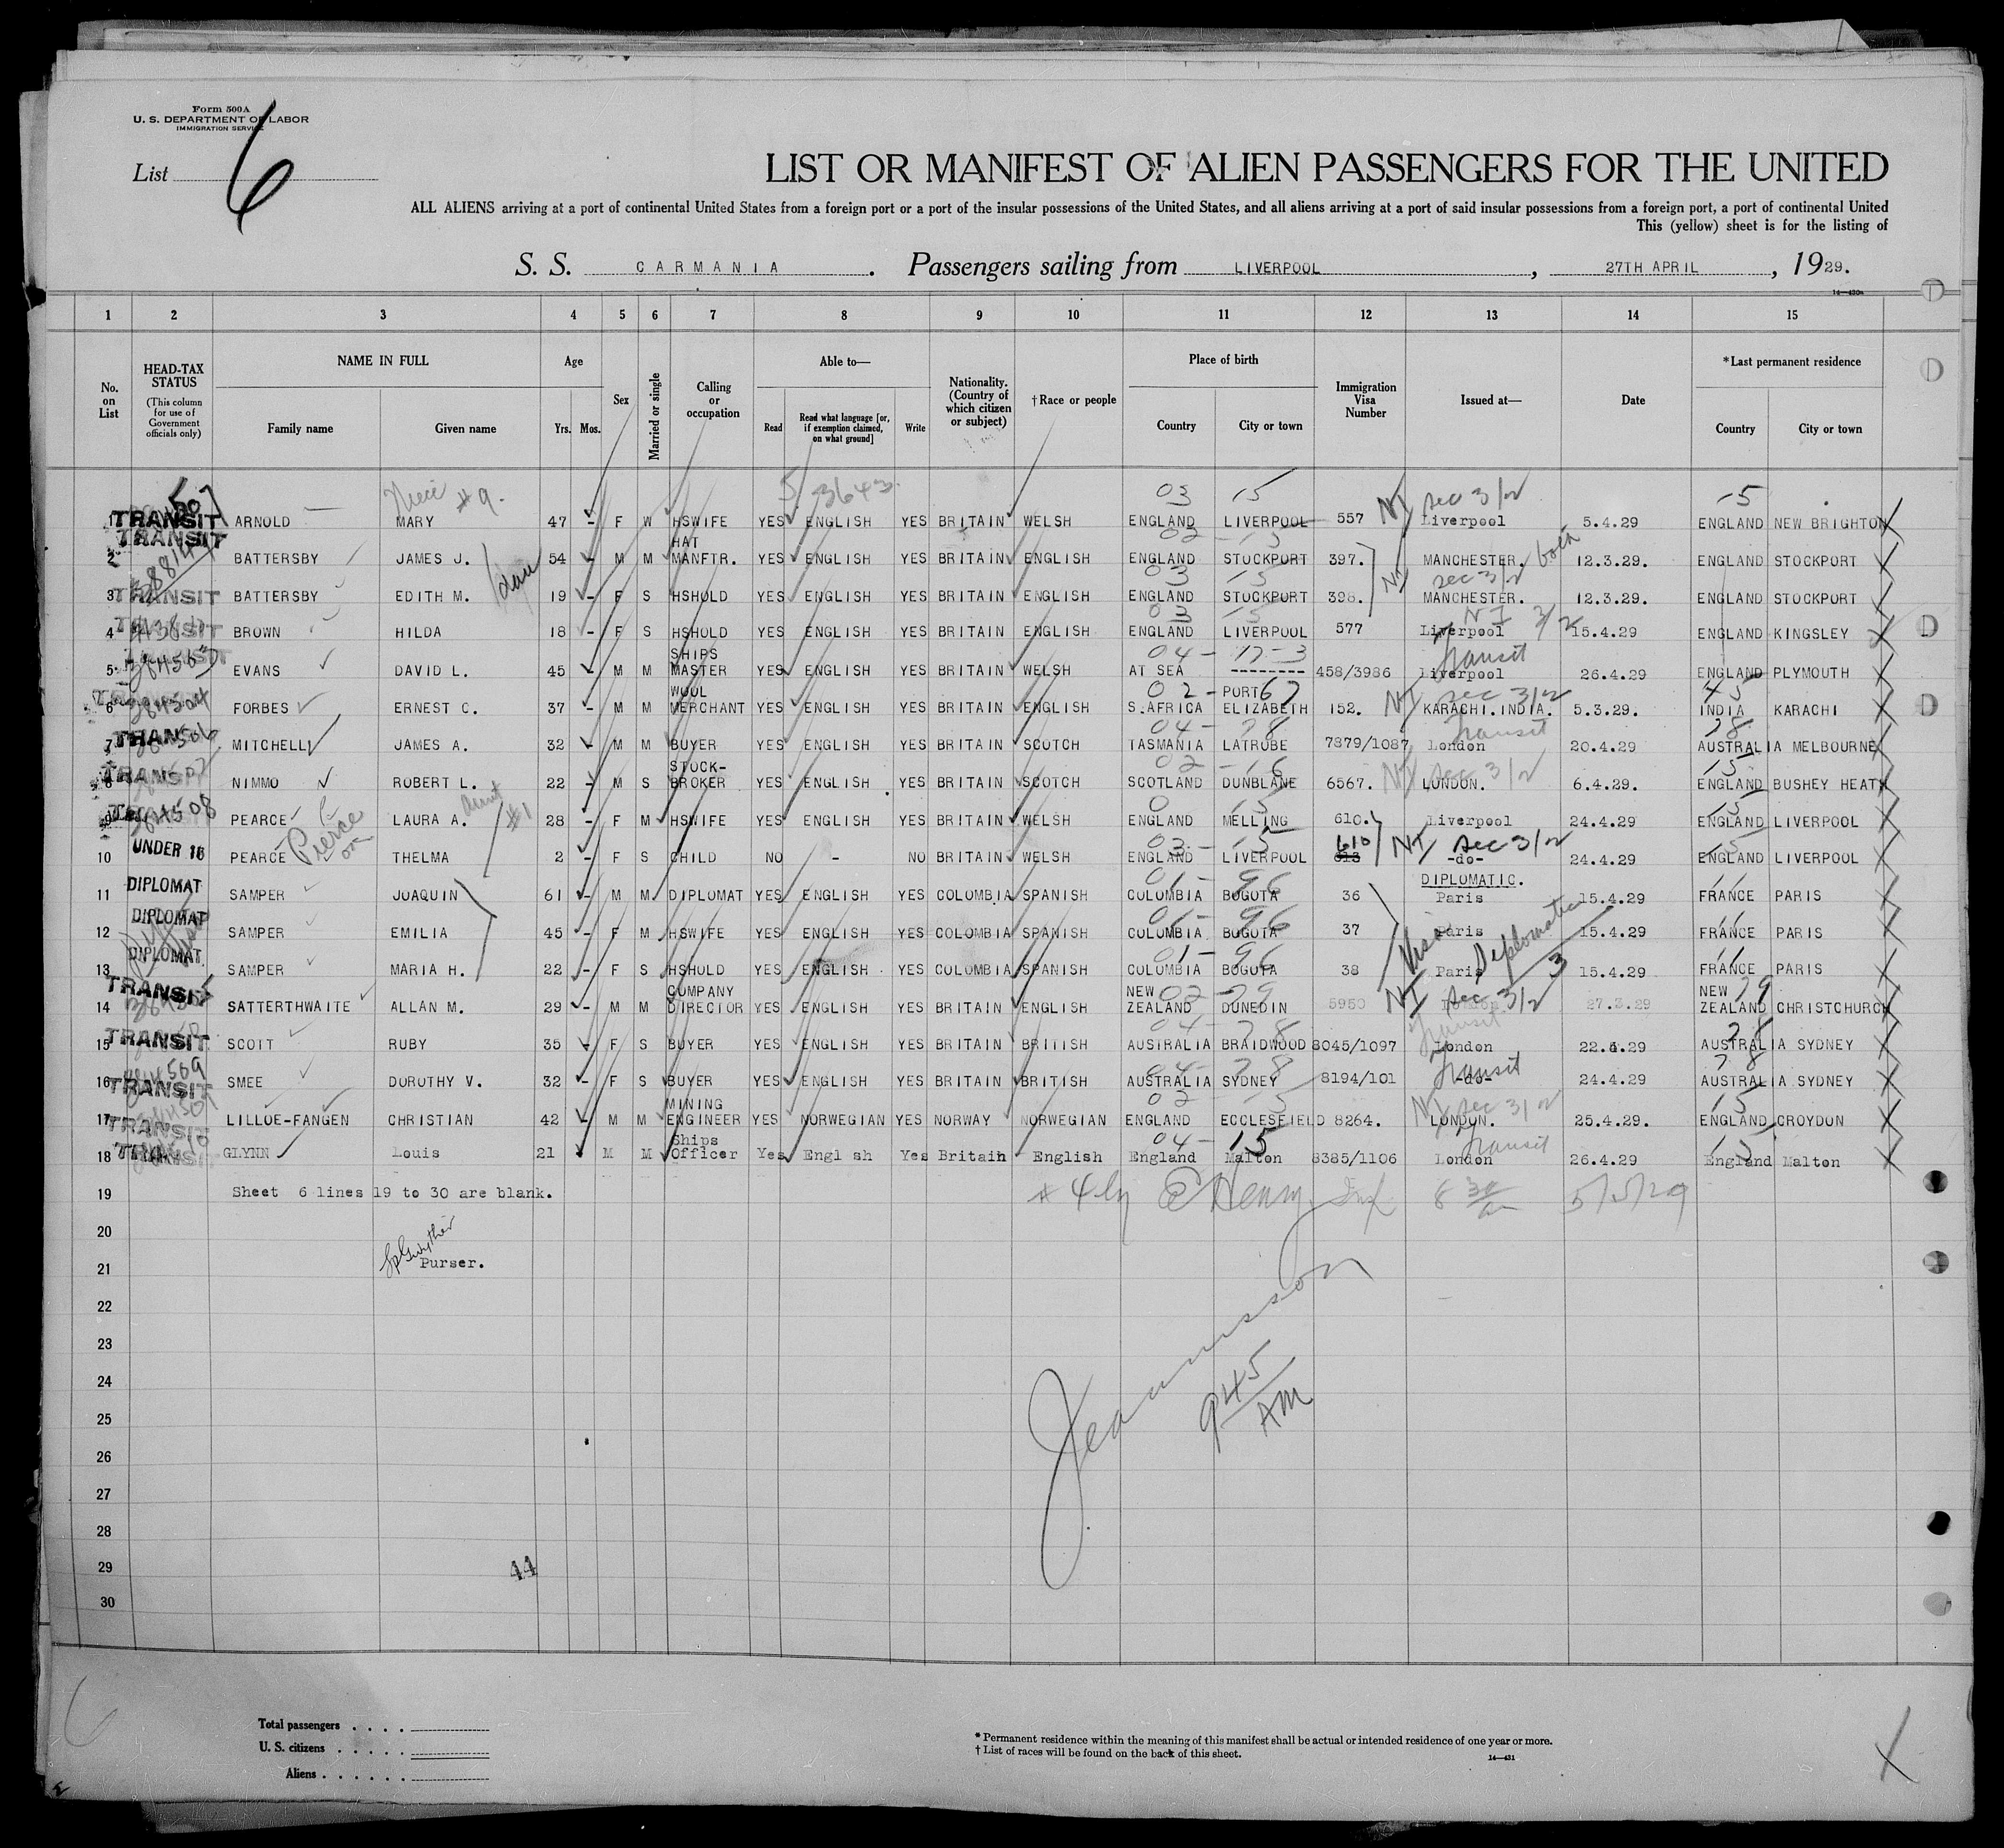 Form 500A
U. S. DEPARTMENT OF LABOR
IMMIGRATION SERVICE
List 6
LIST OR MANIFEST OF ALIEN PASSENGERS FOR THE UNITED
ALL ALIENS arriving at a port of continental United States from a foreign port or a port of the insular possessions of the United States, and all aliens arriving at a port of said insular possessions from a foreign port, a port of continental United
This (yellow) sheet is for the listing of
S. S. CARMANIA. Passengers sailing from LIVERPOOL, 27TH APRIL, 1929.
1 2 3 4 5 6 7 8 9 10 11 12 13 14 15
No. on List
HEAD-TAX STATUS (This column for use of Government officials only)
NAME IN FULL Family name Given name
Age Yrs. Mos.
Sex
Married or single
Calling or occupation
Able to— Read Read what language [or, if exemption claimed, on what ground] Write
Nationality. (Country of which citizen or subject)
†Race or people
Place of birth Country City or town
Immigration Visa Number
Issued at—
Date
*Last permanent residence Country City or town
Niece #9. 5/3643 03 15 sec 3/2 15
1 TRANSIT ARNOLD MARY 47 - F W HSWIFE YES ENGLISH YES BRITAIN WELSH ENGLAND LIVERPOOL 557 NI Liverpool 5.4.29 ENGLAND NEW BRIGHTON
HAT 02 - 15
2 TRANSIT BATTERSBY JAMES J. 54 - M M MANFTR. YES ENGLISH YES BRITAIN ENGLISH ENGLAND STOCKPORT 397. MANCHESTER. both 12.3.29. ENGLAND STOCKPORT
03 15 NI sec 3/2
3 TRANSIT BATTERSBY EDITH M. 19 - F S HSHOLD YES ENGLISH YES BRITAIN ENGLISH ENGLAND STOCKPORT 398. MANCHESTER. 12.3.29. ENGLAND STOCKPORT
03 15 NI 3/2
4 TRANSIT BROWN HILDA 18 - F S HSHOLD YES ENGLISH YES BRITAIN ENGLISH ENGLAND LIVERPOOL 577 Liverpool 15.4.29 ENGLAND KINGSLEY
SHIPS 04 - 17-3 Transit
5 TRANSIT EVANS DAVID L. 45 - M M MASTER YES ENGLISH YES BRITAIN WELSH AT SEA -------- 458/3986 Liverpool 26.4.29 ENGLAND PLYMOUTH
WOOL 02 - PORT 67 NI sec 3/2 45
6 FORBES ERNEST C. 37 - M M MERCHANT YES ENGLISH YES BRITAIN ENGLISH S.AFRICA ELIZABETH 152. KARACHI.INDIA. 5.3.29. INDIA KARACHI
04 - 78 Transit 78
7 TRANSIT MITCHELL JAMES A. 32 - M M BUYER YES ENGLISH YES BRITAIN SCOTCH TASMANIA LATROBE 7879/1087 London 20.4.29 AUSTRALIA MELBOURNE
STOCK- 02 - 16 NI sec 3/2 15
8 TRANSIT NIMMO ROBERT L. 22 - M S BROKER YES ENGLISH YES BRITAIN SCOTCH SCOTLAND DUNBLANE 6567. LONDON. 6.4.29. ENGLAND BUSHEY HEATH
Aunt #1 15 15
9 PEARCE LAURA A. 28 - F M HSWIFE YES ENGLISH YES BRITAIN WELSH ENGLAND MELLING 610. Liverpool 24.4.29 ENGLAND LIVERPOOL
Pierce or 03 - 15 610 NI sec 3/2 15
10 UNDER 16 PEARCE THELMA 2 - F S CHILD NO - NO BRITAIN WELSH ENGLAND LIVERPOOL 613 -do- 24.4.29 ENGLAND LIVERPOOL
01 - 96 DIPLOMATIC. 11
11 DIPLOMAT SAMPER JOAQUIN 61 - M M DIPLOMAT YES ENGLISH YES COLOMBIA SPANISH COLOMBIA BOGOTA 36 Paris 15.4.29 FRANCE PARIS
01 - 96 11
12 DIPLOMAT SAMPER EMILIA 45 - F M HSWIFE YES ENGLISH YES COLOMBIA SPANISH COLOMBIA BOGOTA 37 Paris 15.4.29 FRANCE PARIS
01 - 96 Visa Diplomatic 3 11
13 DIPLOMAT SAMPER MARIA H. 22 - F S HSHOLD YES ENGLISH YES COLOMBIA SPANISH COLOMBIA BOGOTA 38 Paris 15.4.29 FRANCE PARIS
COMPANY NEW 02 - 79 NI sec 3/2 NEW 79
14 TRANSIT SATTERTHWAITE ALLAN M. 29 - M M DIRECTOR YES ENGLISH YES BRITAIN ENGLISH ZEALAND DUNEDIN 5950 27.3.29 ZEALAND CHRISTCHURCH
04 - 78 Transit 78
15 TRANSIT SCOTT RUBY 35 - F S BUYER YES ENGLISH YES BRITAIN BRITISH AUSTRALIA BRAIDWOOD 8045/1097 London 22.4.29 AUSTRALIA SYDNEY
04 - 78 Transit 78
16 TRANSIT SMEE DOROTHY V. 32 - F S BUYER YES ENGLISH YES BRITAIN BRITISH AUSTRALIA SYDNEY 8194/101 -do- 24.4.29 AUSTRALIA SYDNEY
MINING 02 15 NI sec 3/2 15
17 TRANSIT LILLOE-FANGEN CHRISTIAN 42 - M M ENGINEER YES NORWEGIAN YES NORWAY NORWEGIAN ENGLAND ECCLESFIELD 8264. LONDON. 25.4.29. ENGLAND CROYDON
Ships 04 - 15 Transit 15
18 TRANSIT GLYNN Louis 21 M M Officer Yes Engl sh Yes Britain English England Malton 8385/1106 London 26.4.29 England Malton
19 Sheet 6 lines 19 to 30 are blank. #4 by Henry 8 30 am 5/5/29
20
21 Purser.
22
23
24 945 AM
25
26
27
28
29 44
30
Total passengers . . . .
U. S. citizens . . . . .
Aliens . . . . . .
* Permanent residence within the meaning of this manifest shall be actual or intended residence of one year or more.
† List of races will be found on the back of this sheet.
14—431